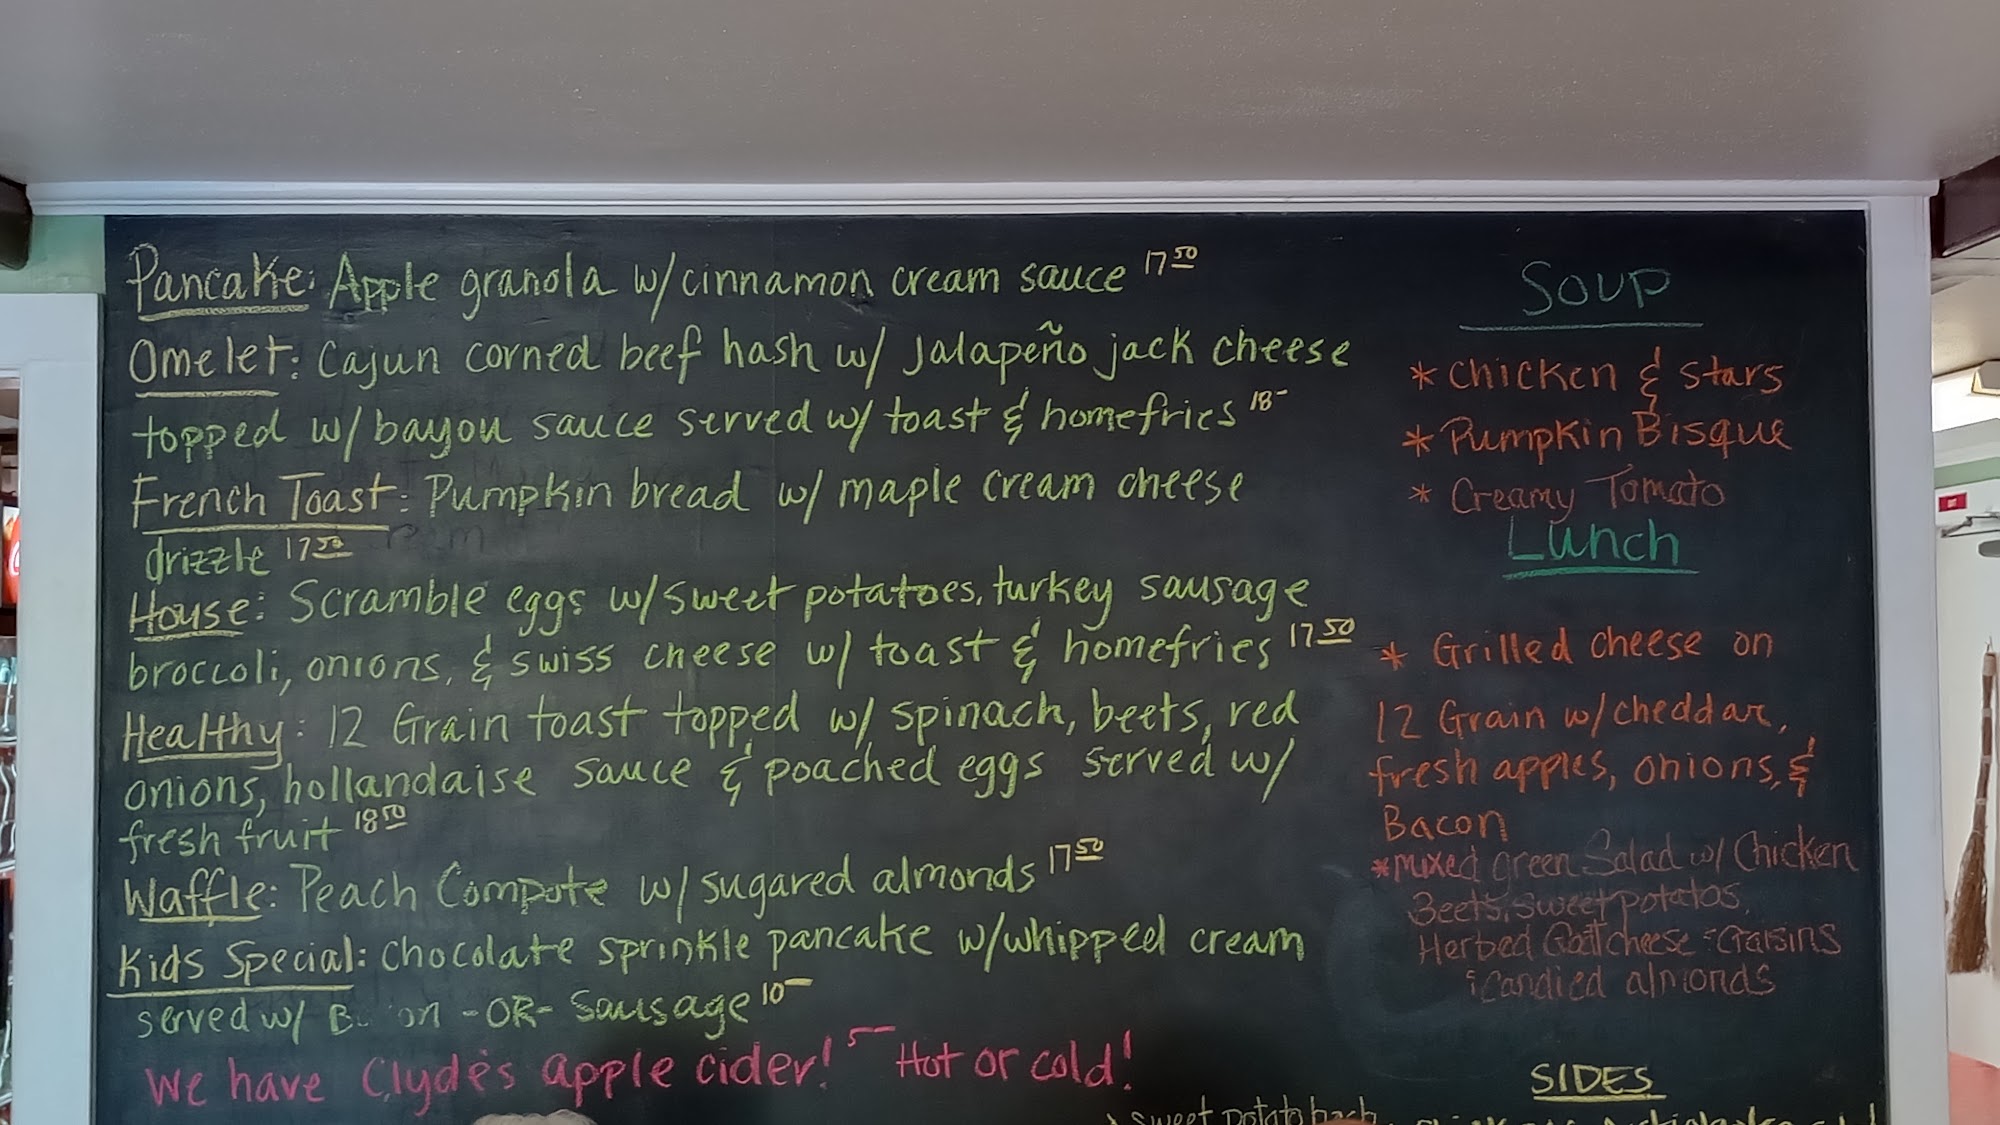 Pancake: Apple granola w/cinnamon cream sauce 17 50
Omelet: Cajun corned beef hash w/ Jalapeño jack cheese
topped w/ bayou sauce served w/ toast & homefries 18-
French Toast: Pumpkin bread w/ maple cream cheese
drizzle 17 50
House: Scramble eggs w/sweet potatoes, turkey sausage
broccoli, onions, & swiss cheese w/ toast & homefries 17 50
Healthy: 12 Grain toast topped w/ spinach, beets, red
onions, hollandaise sauce & poached eggs served w/
fresh fruit 18 50
Waffle: Peach Compote w/ sugared almonds 17 50
Kids Special: Chocolate sprinkle pancake w/whipped cream
served w/ -OR- Sausage 10-
We have Clyde's apple cider! 5- Hot or cold!
Soup
* Chicken & stars
* Pumpkin Bisque
* Creamy Tomato
Lunch
* Grilled cheese on
12 Grain w/cheddar,
fresh apples, onions, &
Bacon
* Mixed green Salad w/ Chicken
Beets, sweet potatos,
Herbed Goat cheese Craisins
Candied almonds
SIDES
sweet potato hash